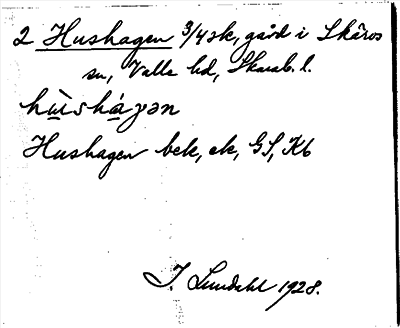 2 Hushagen 3/4 sk, gård i Skärvs
sn, Valle hd, Skarab. l.
hùshá̱gən
Hushagen bek, ek, GS, Kb
I. Lundahl 1928.